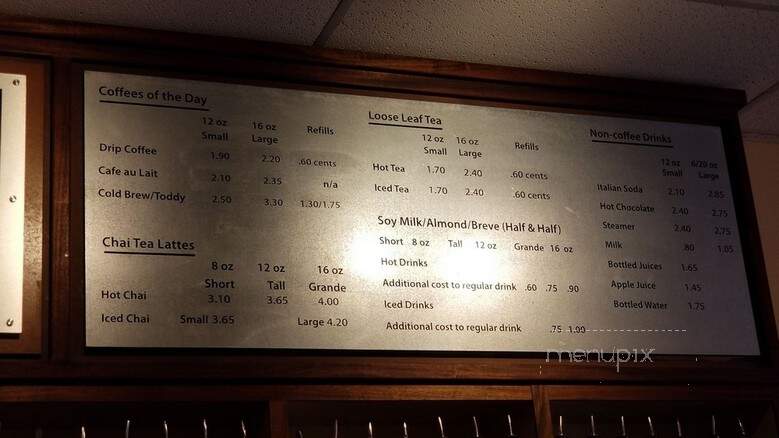 Coffees of the Day
12 oz 16 oz
Small Large Refills
Drip Coffee 1.90 2.20 .60 cents
Cafe au Lait 2.10 2.35 n/a
Cold Brew/Toddy 2.50 3.30 1.30/1.75
Chai Tea Lattes
8 oz 12 oz 16 oz
Short Tall Grande
Hot Chai 3.10 3.65 4.00
Iced Chai Small 3.65 Large 4.20
Loose Leaf Tea
12 oz 16 oz
Small Large Refills
Hot Tea 1.70 2.40 .60 cents
Iced Tea 1.70 2.40 .60 cents
Soy Milk/Almond/Breve (Half & Half)
Short 8 oz Tall 12 oz Grande 16 oz
Hot Drinks
Additional cost to regular drink .60 .75 .90
Iced Drinks
Additional cost to regular drink .75 1.00
Non-coffee Drinks
12 oz 6/20 oz
Small Large
Italian Soda 2.10 2.85
Hot Chocolate 2.40 2.75
Steamer 2.40 2.75
Milk .80 1.05
Bottled Juices 1.65
Apple Juice 1.45
Bottled Water 1.75
menupix